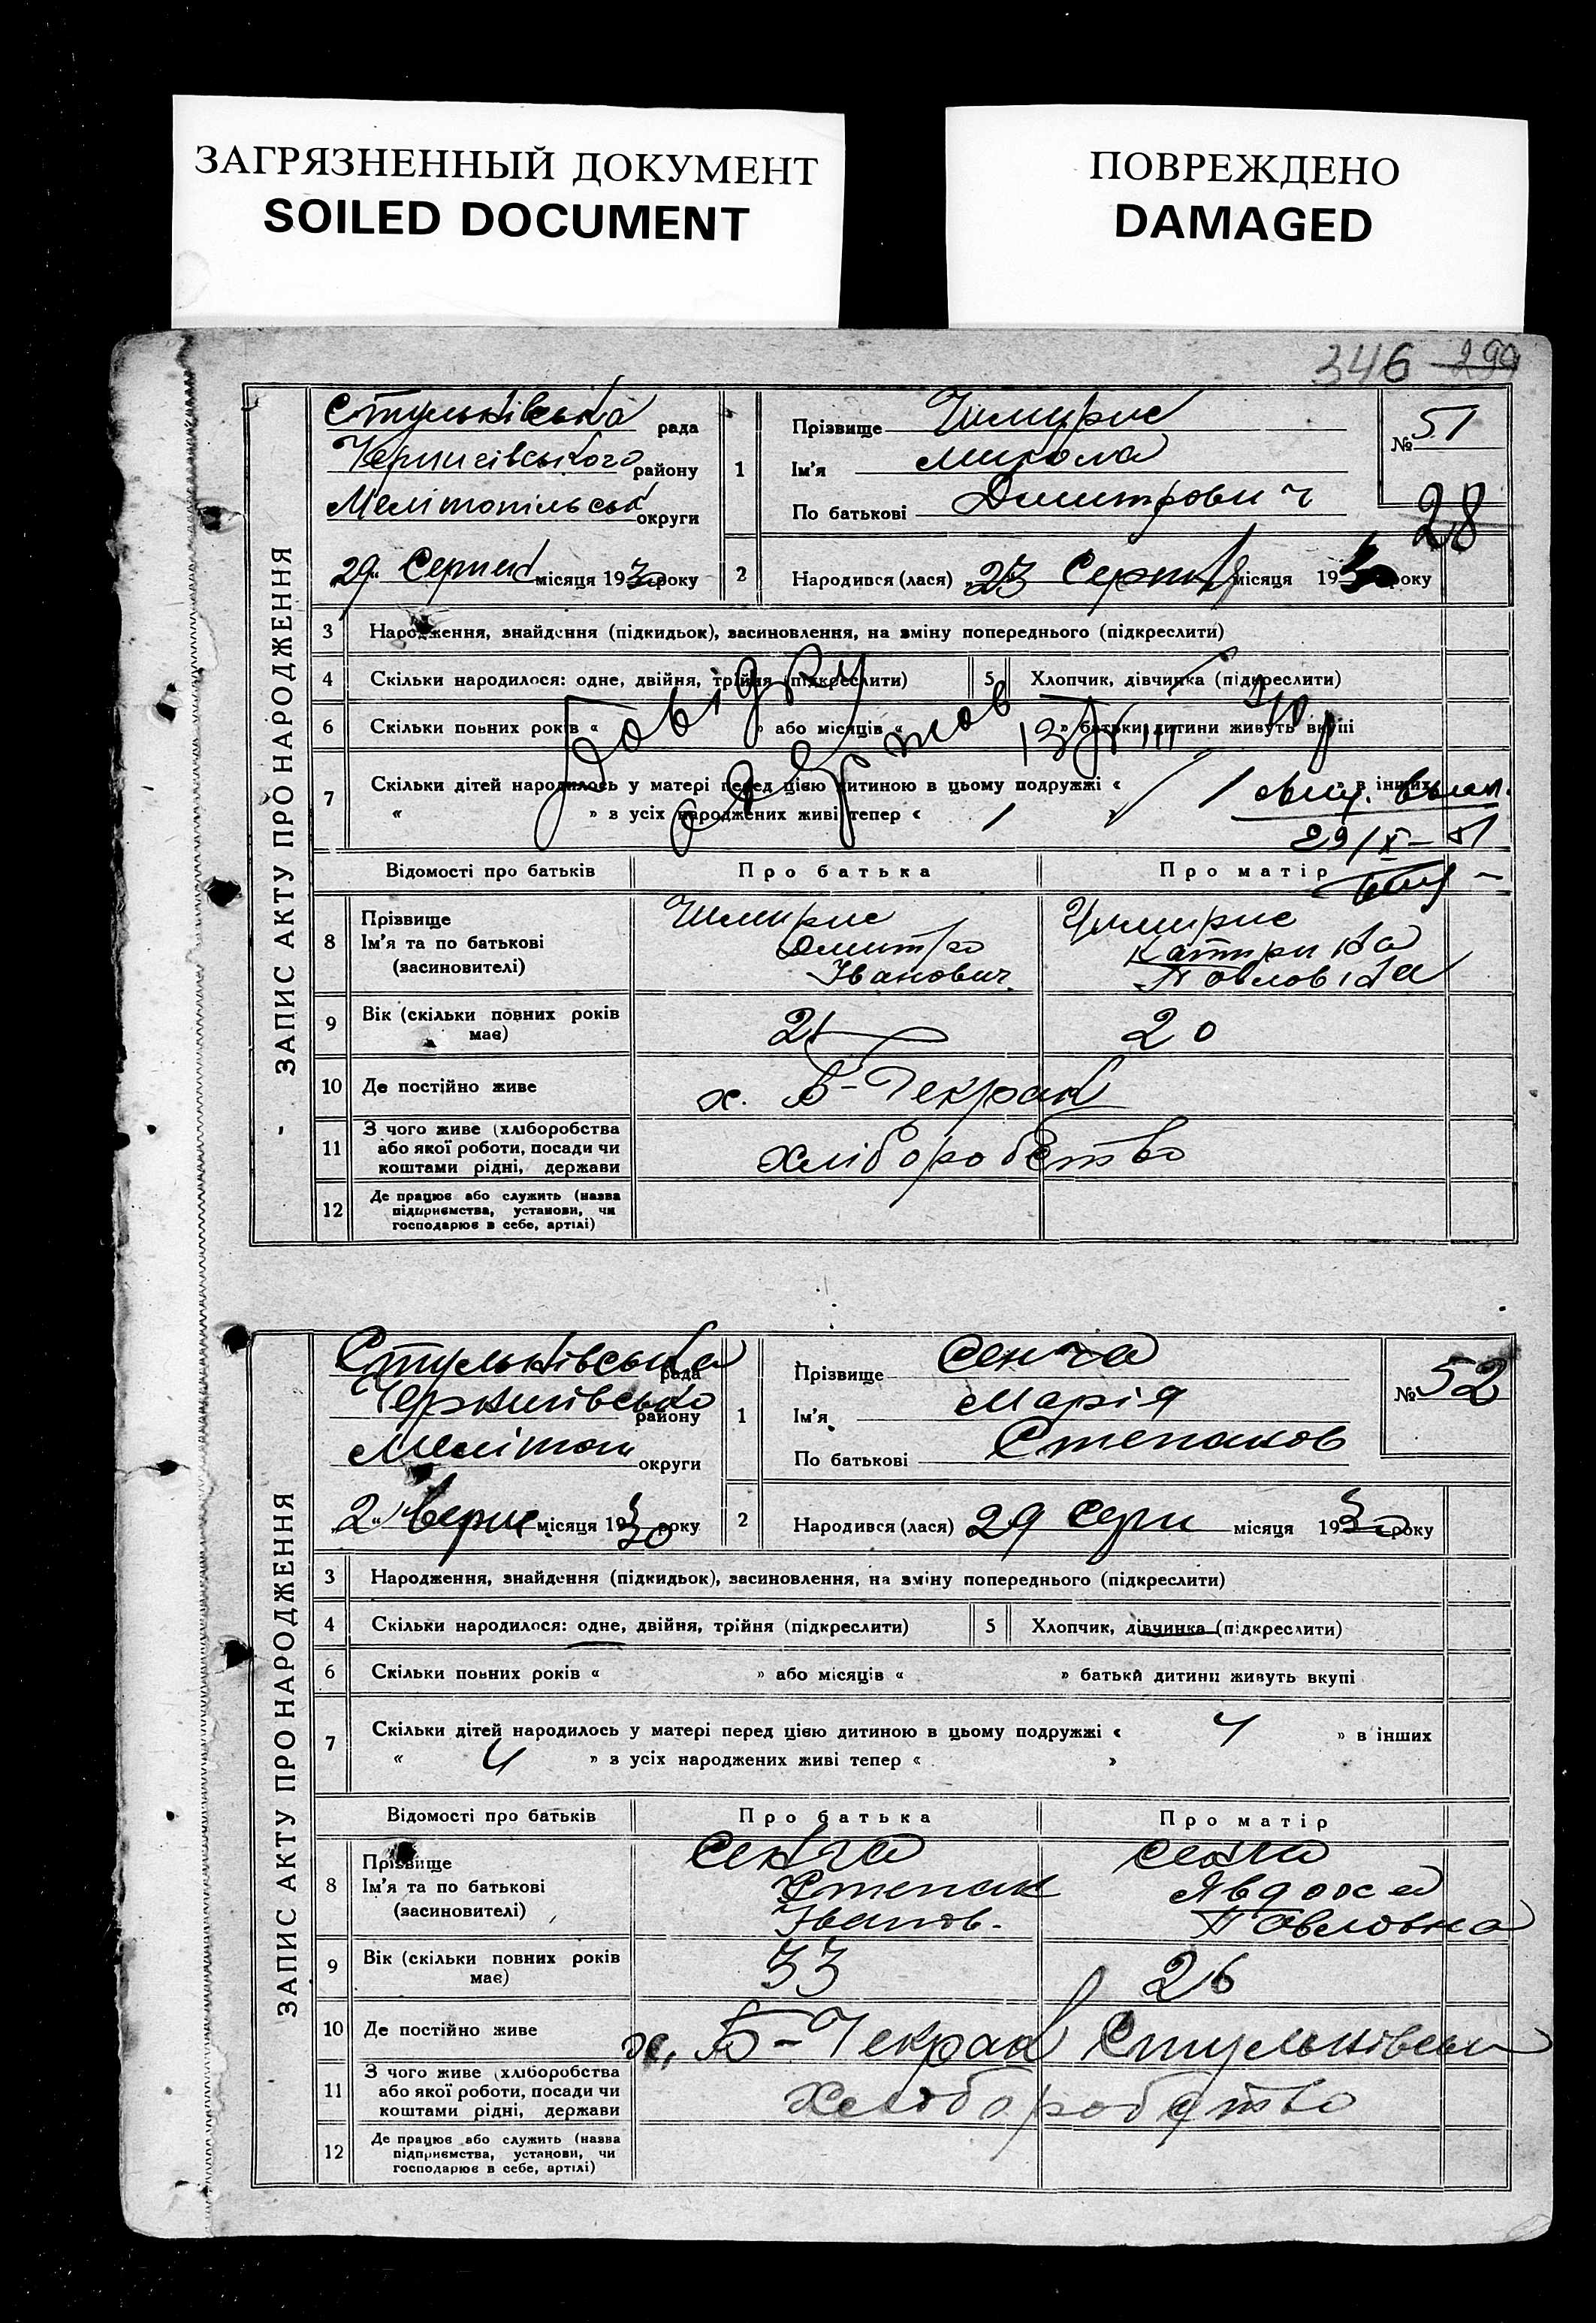 ЗАГРЯЗНЕННЫЙ ДОКУМЕНТ
SOILED DOCUMENT
ПОВРЕЖДЕНО
DAMAGED
346 299
ЗАПИС АКТУ ПРО НАРОДЖЕННЯ
Стульнівська рада
Чернигівського району
Мелітопільськ округи
29 " Серпня місяця 1930 року
1
Прізвище Шмирис
Ім'я Микола
По батькові Дмитрович
№ 51
28
2 Народився (лася) 23 Серпня місяця 1930 року
3 Народження, знайдення (підкидьок), засиновлення, на зміну попереднього (підкреслити)
4 Скільки народилося: одне, двійня, трійня (підкреслити) 5 Хлопчик, дівчинка (підкреслити)
6 Скільки повних років « » або місяців « » батьки дитини живуть вкупі
7 Скільки дітей народилось у матері перед цією дитиною в цьому подружжі « 1 » в інших
« » з усіх народжених живі тепер « 1 »
29/X-51
Відомості про батьків Про батька Про матір
8 Прізвище Ім'я та по батькові (засиновителі)
Шмирис Дмитро Іванович
Шмирис Катирина Павловна
9 Вік (скільки повних років має) 21 20
10 Де постійно живе х. Б-Текрак
11 З чого живе (хліборобства або якої роботи, посади чи коштами рідні, держави хліборобство
12 Де працює або служить (назва підприємства, установи, чи господарює в себе, артілі)
ЗАПИС АКТУ ПРО НАРОДЖЕННЯ
Стульнівська рада
Чернигівсько району
Мелітоп округи
2 " Верес місяця 1930 року
1
Прізвище Сенча
Ім'я Марія
По батькові Степанов
№ 52
2 Народився (лася) 29 Серп місяця 1930 року
3 Народження, знайдення (підкидьок), засиновлення, на зміну попереднього (підкреслити)
4 Скільки народилося: одне, двійня, трійня (підкреслити) 5 Хлопчик, дівчинка (підкреслити)
6 Скільки повних років « » або місяців « » батьки дитини живуть вкупі
7 Скільки дітей народилось у матері перед цією дитиною в цьому подружжі « 4 » в інших
« 4 » з усіх народжених живі тепер « »
Відомості про батьків Про батька Про матір
8 Прізвище Ім'я та по батькові (засиновителі)
Сенча Степан Іванов.
Сенча Явдоха Павловна
9 Вік (скільки повних років має) 33 26
10 Де постійно живе х. Б-Текрак Стульнівськ
11 З чого живе (хліборобства або якої роботи, посади чи коштами рідні, держави Хліборобство
12 Де працює або служить (назва підприємства, установи, чи господарює в себе, артілі)